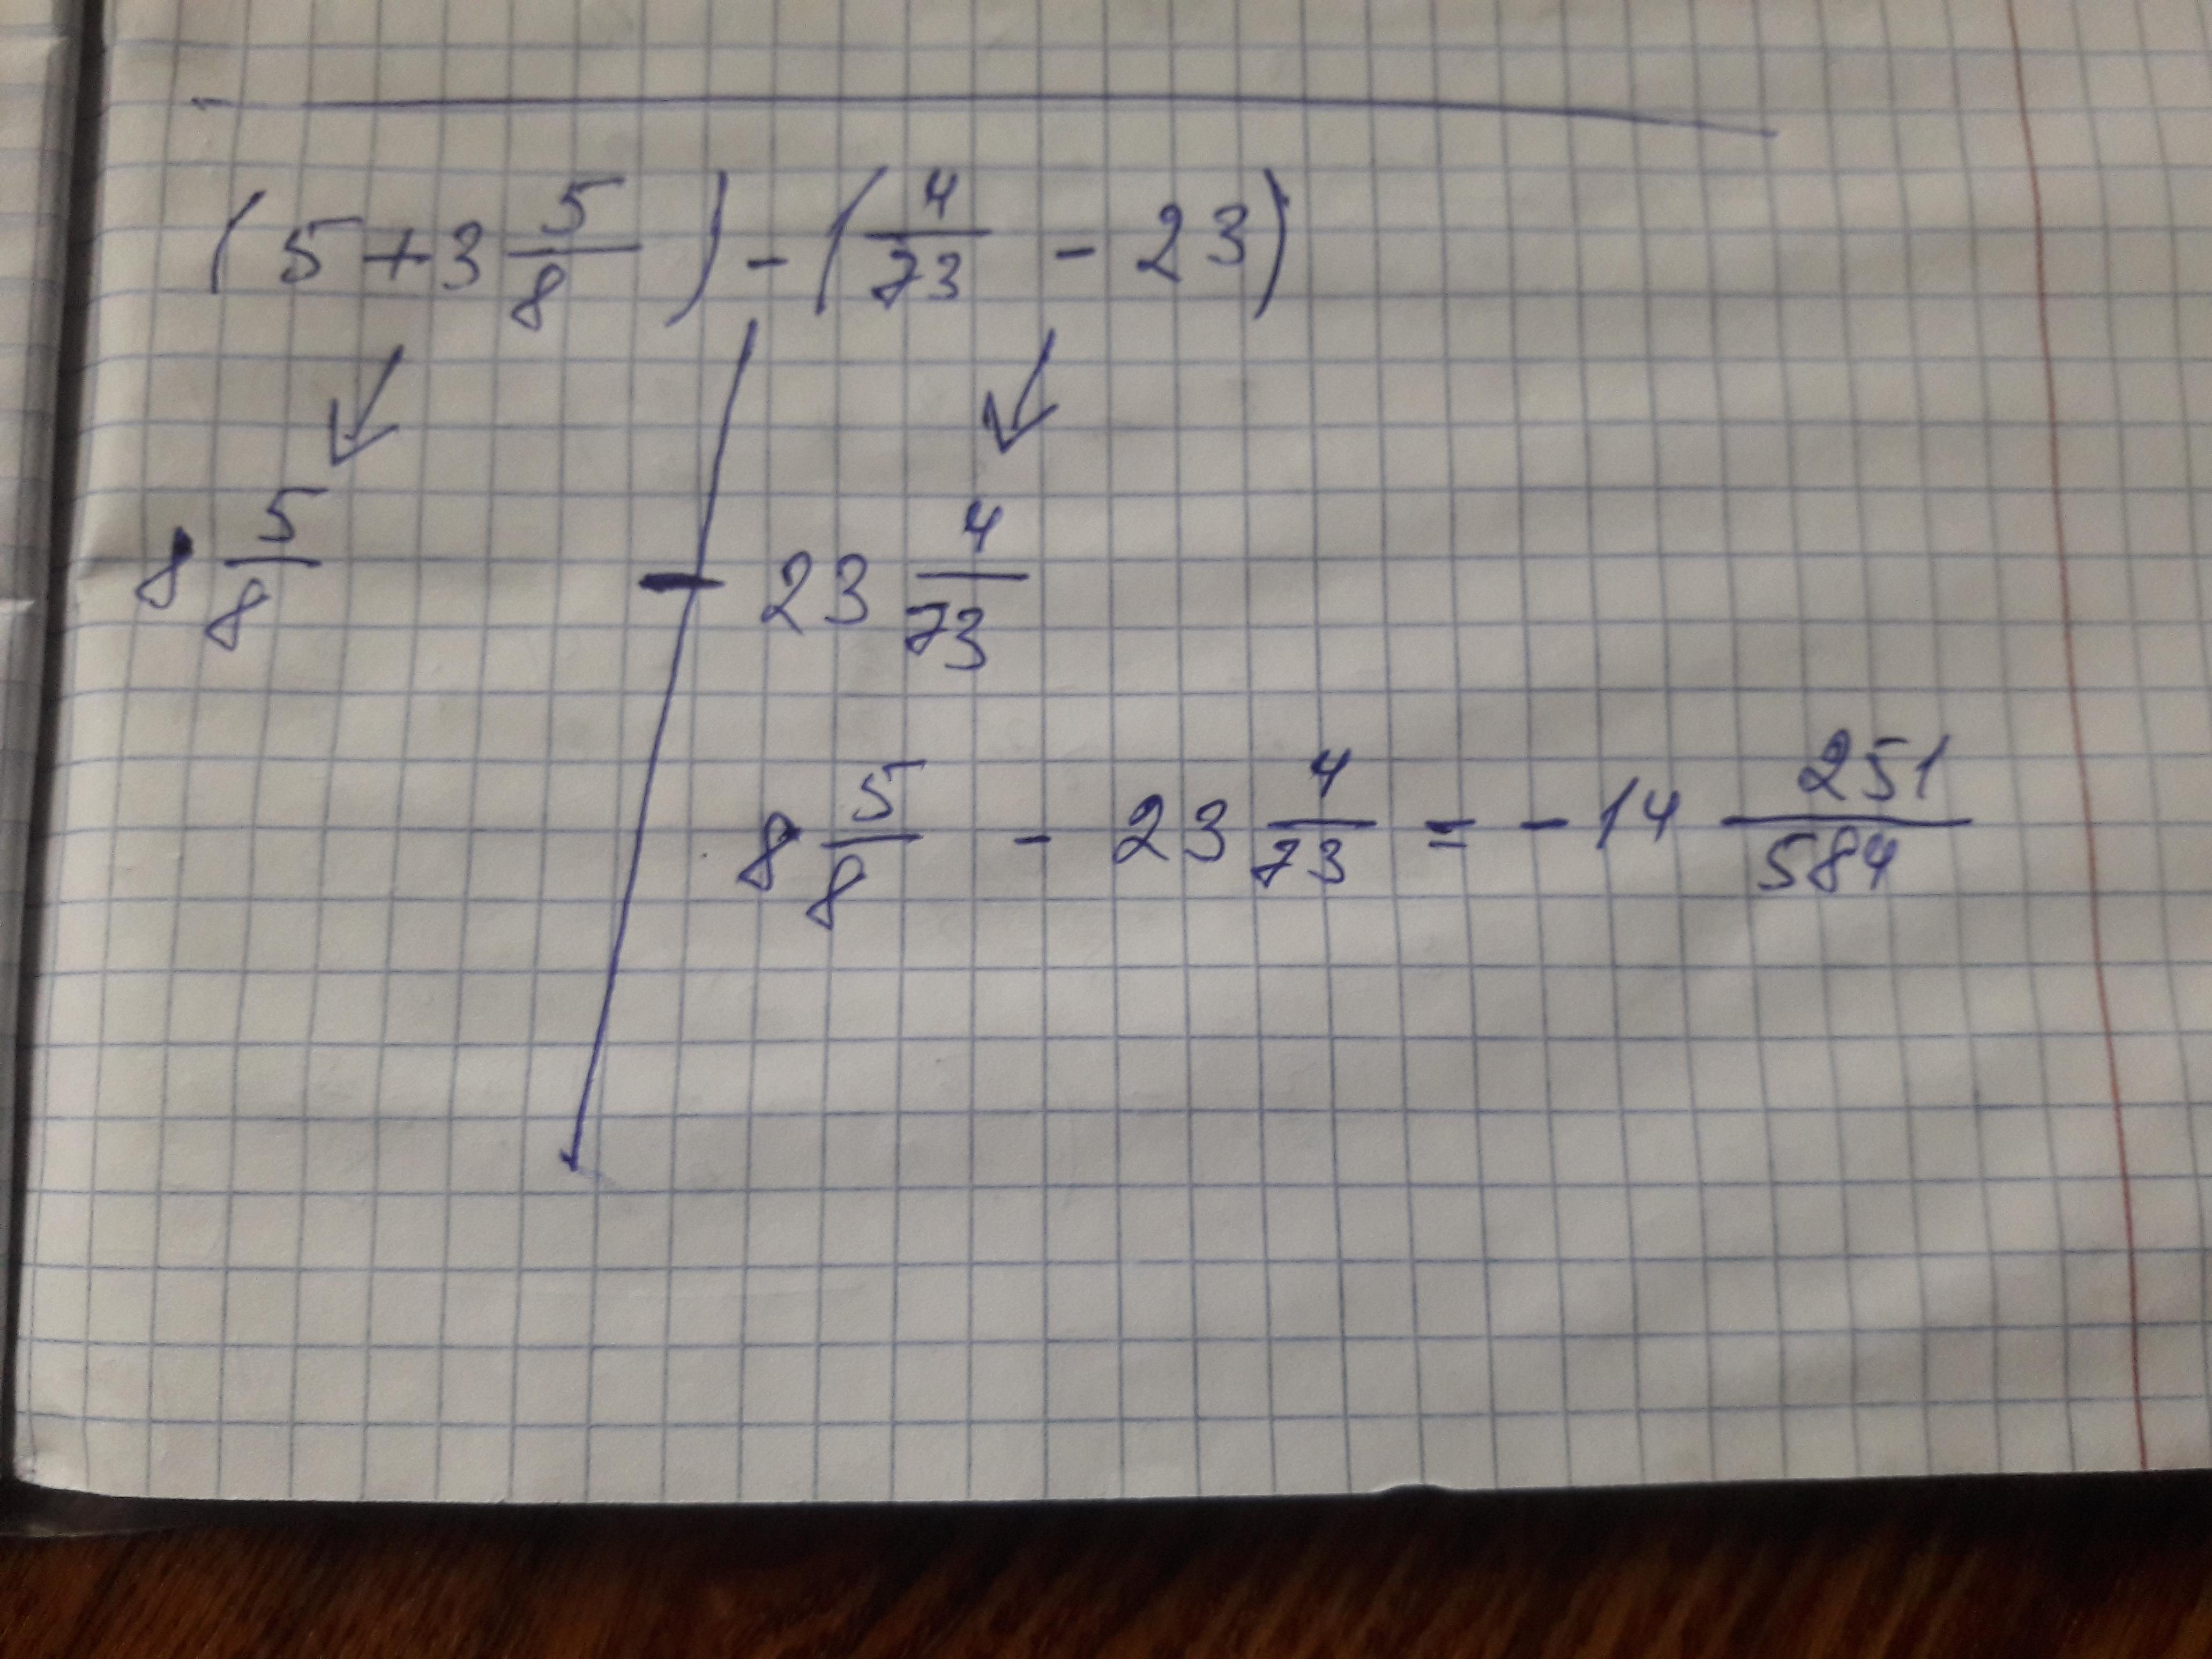 (5+3 5/8) - (4/73 - 23)
8 5/8 - 23 4/73
8 5/8 - 23 4/73 = -14 251/584